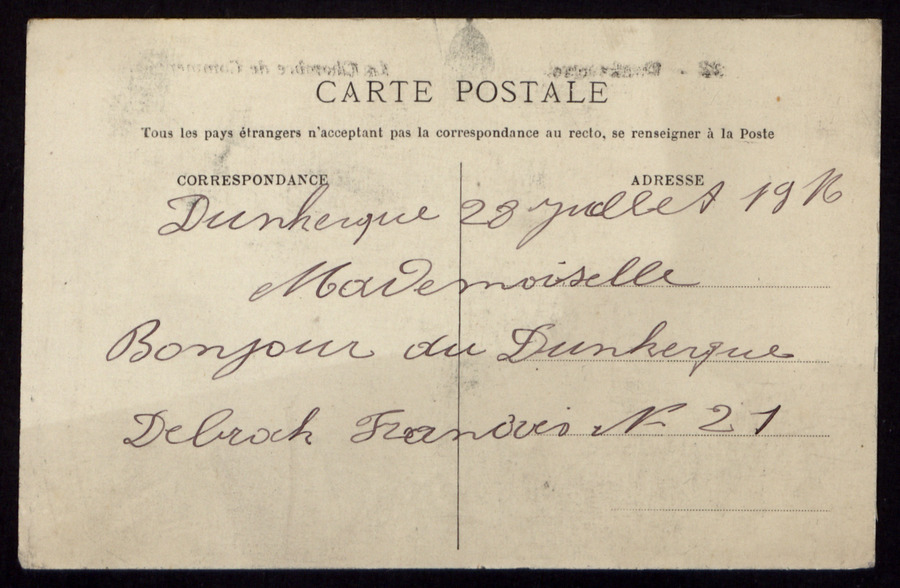 CARTE POSTALE
Tous les pays étrangers n'acceptant pas la correspondance au recto, se renseigner à la Poste
CORRESPONDANCE
ADRESSE
Dunkerque 28 juillet 1916
Mademoiselle
Bonjour du Dunkerque
Debrock Francois N 21